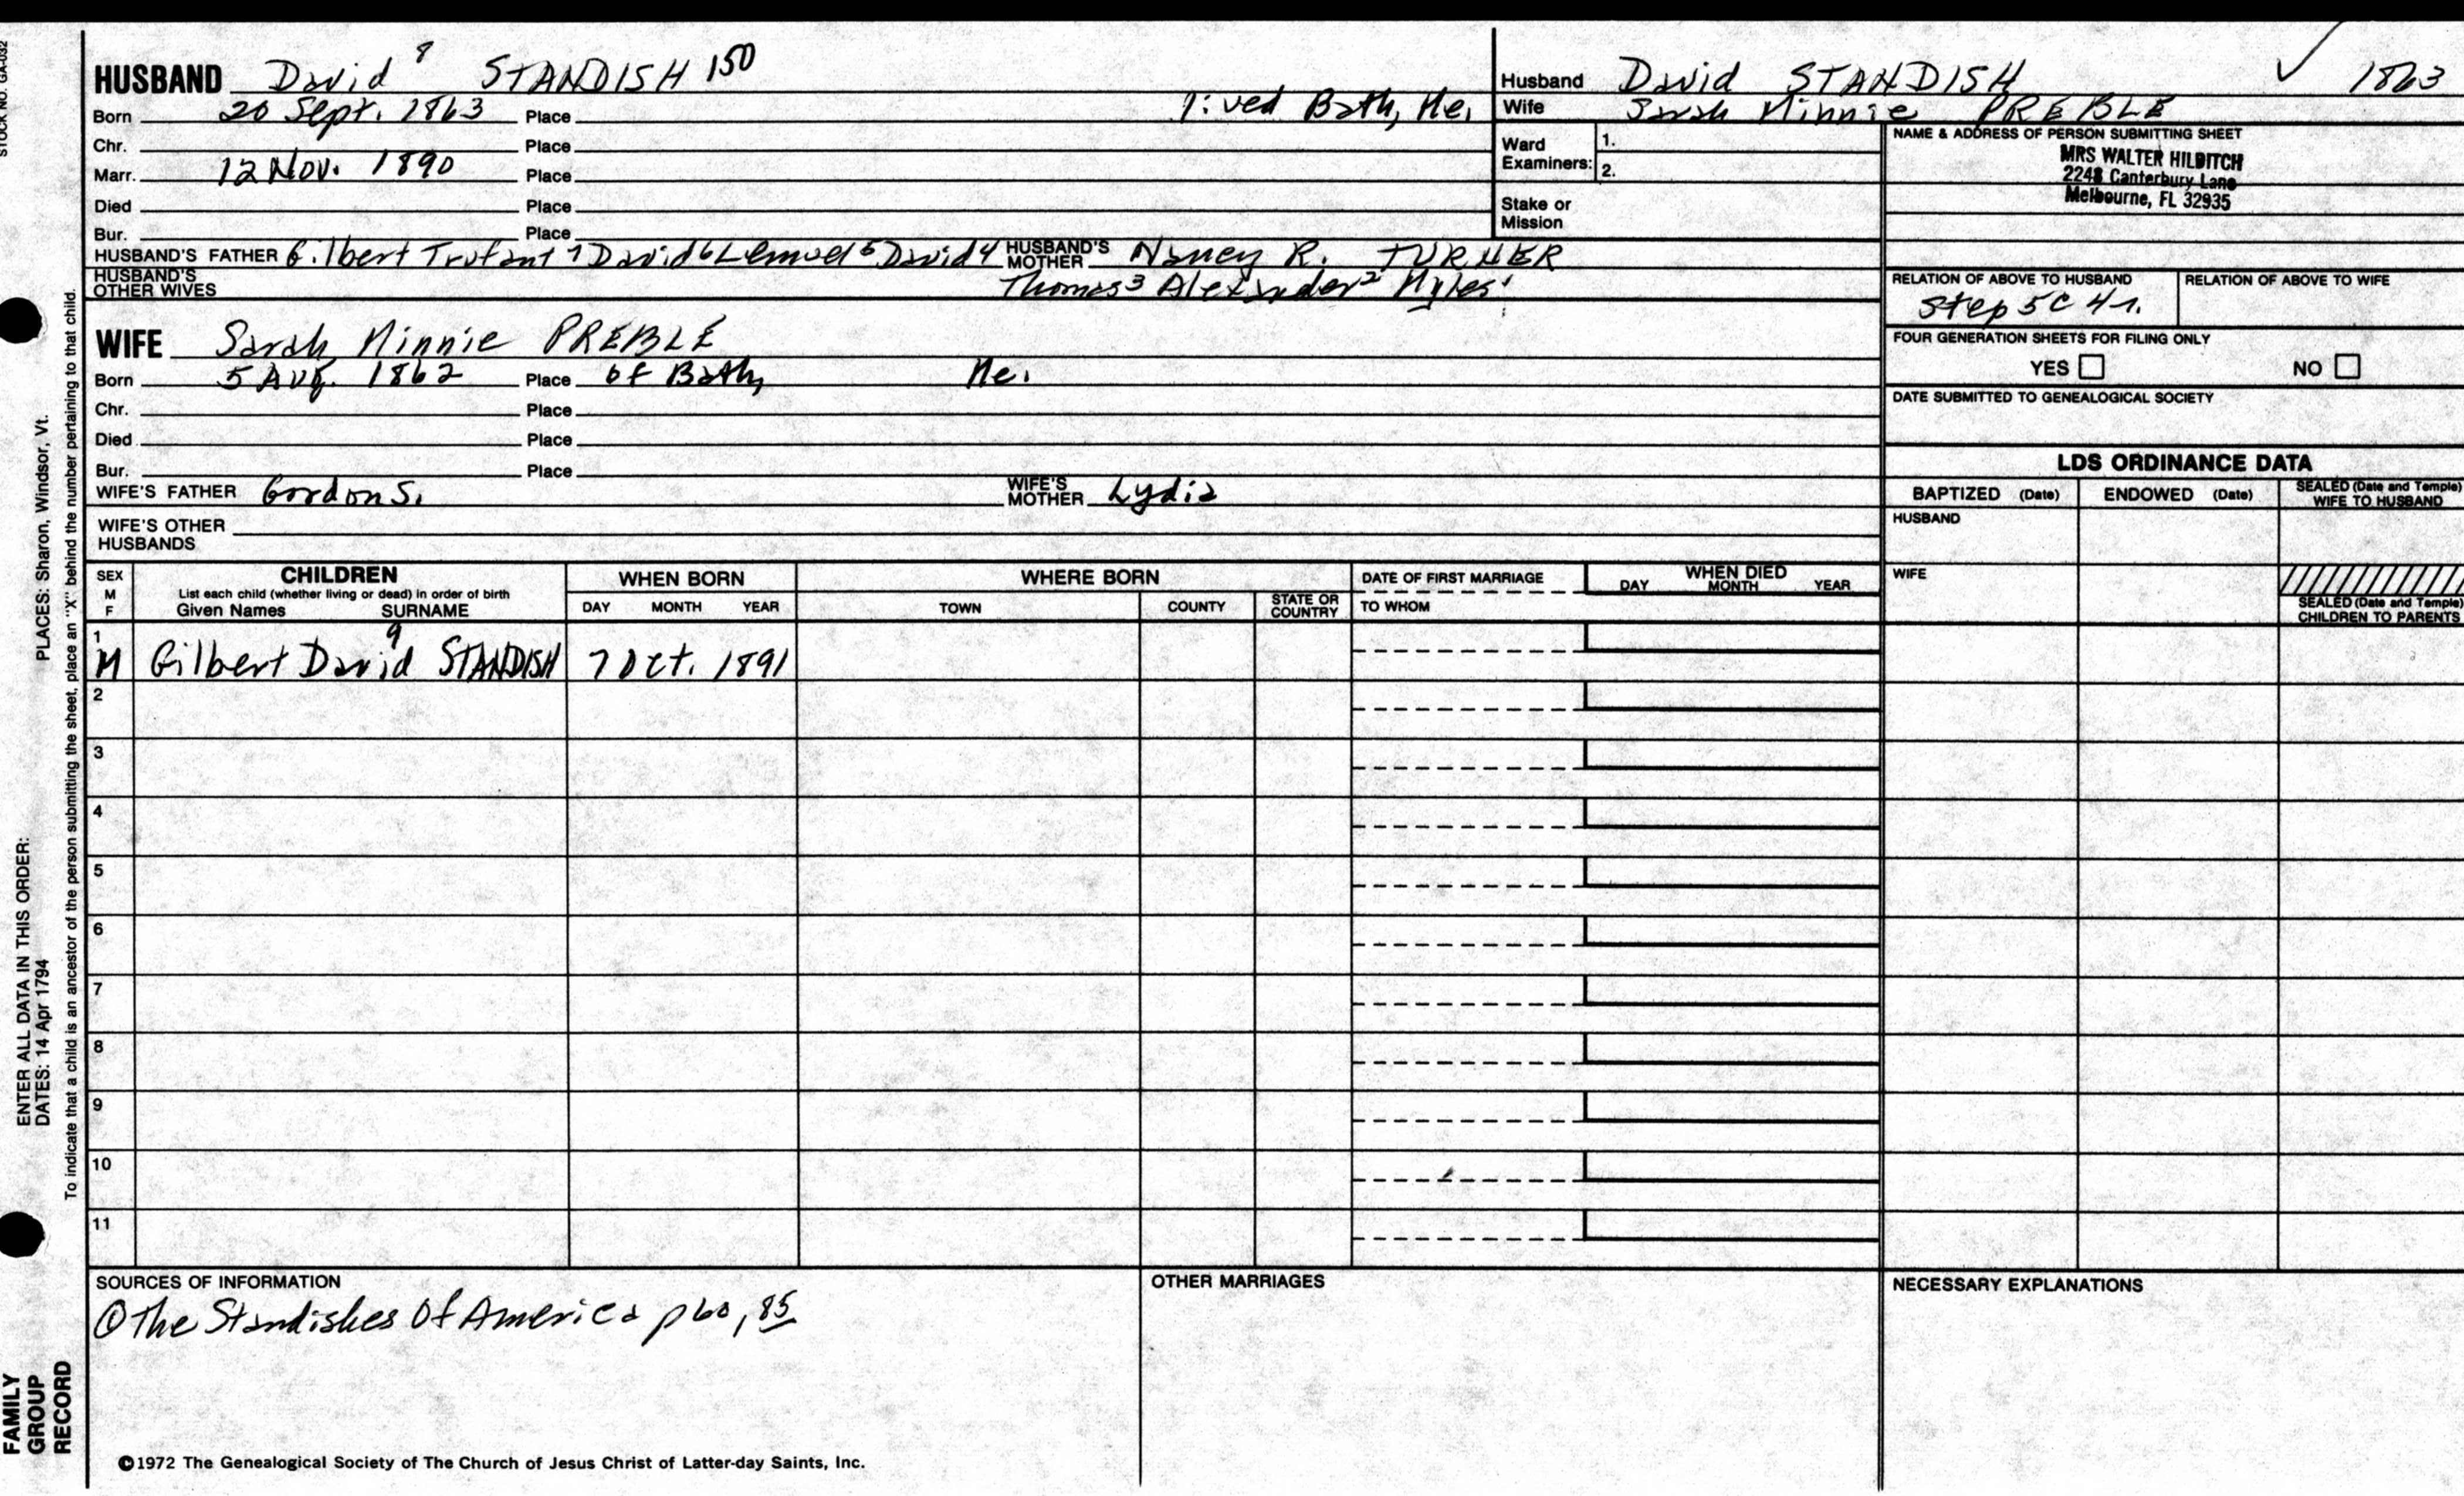 STOCK NO. GA-032
HUSBAND David 8 STANDISH 150
Born 20 Sept. 1863 Place lived Bath, Me.
Chr. Place
Marr. 12 Nov. 1890 Place
Died Place
Bur. Place
HUSBAND'S FATHER Gilbert Trufant 7 David 6 Lemuel 5 David 4 HUSBAND'S MOTHER Nancy R. TURNER
HUSBAND'S OTHER WIVES Thomas 3 Alexander 2 Myles 1
WIFE Sarah Minnie PREBLE
Born 5 Aug. 1862 Place of Bath, Me.
Chr. Place
Died Place
Bur. Place
WIFE'S FATHER Gordon S. WIFE'S MOTHER Lydia
WIFE'S OTHER HUSBANDS
Husband David STANDISH 1863
Wife Sarah Minnie PREBLE
Ward Examiners: 1.
2.
Stake or Mission
NAME & ADDRESS OF PERSON SUBMITTING SHEET
MRS WALTER HILDITCH
2248 Canterbury Lane
Melbourne, FL 32935
RELATION OF ABOVE TO HUSBAND RELATION OF ABOVE TO WIFE
Step 5C 4r.
FOUR GENERATION SHEETS FOR FILING ONLY
YES NO
DATE SUBMITTED TO GENEALOGICAL SOCIETY
LDS ORDINANCE DATA
BAPTIZED (Date) ENDOWED (Date) SEALED (Date and Temple) WIFE TO HUSBAND
HUSBAND
WIFE
SEALED (Date and Temple) CHILDREN TO PARENTS
SEX M F
CHILDREN
List each child (whether living or dead) in order of birth
Given Names SURNAME
WHEN BORN
DAY MONTH YEAR
WHERE BORN
TOWN COUNTY STATE OR COUNTRY
DATE OF FIRST MARRIAGE
TO WHOM
WHEN DIED
DAY MONTH YEAR
1 M Gilbert David 9 STANDISH 7 Oct. 1891
2
3
4
5
6
7
8
9
10
11
SOURCES OF INFORMATION
① The Standishes Of America p 60, 85
OTHER MARRIAGES
NECESSARY EXPLANATIONS
©1972 The Genealogical Society of The Church of Jesus Christ of Latter-day Saints, Inc.
ENTER ALL DATA IN THIS ORDER:
DATES: 14 Apr 1794
PLACES: Sharon, Windsor, Vt.
To indicate that a child is an ancestor of the person submitting the sheet, place an "X" behind the number pertaining to that child.
FAMILY
GROUP
RECORD